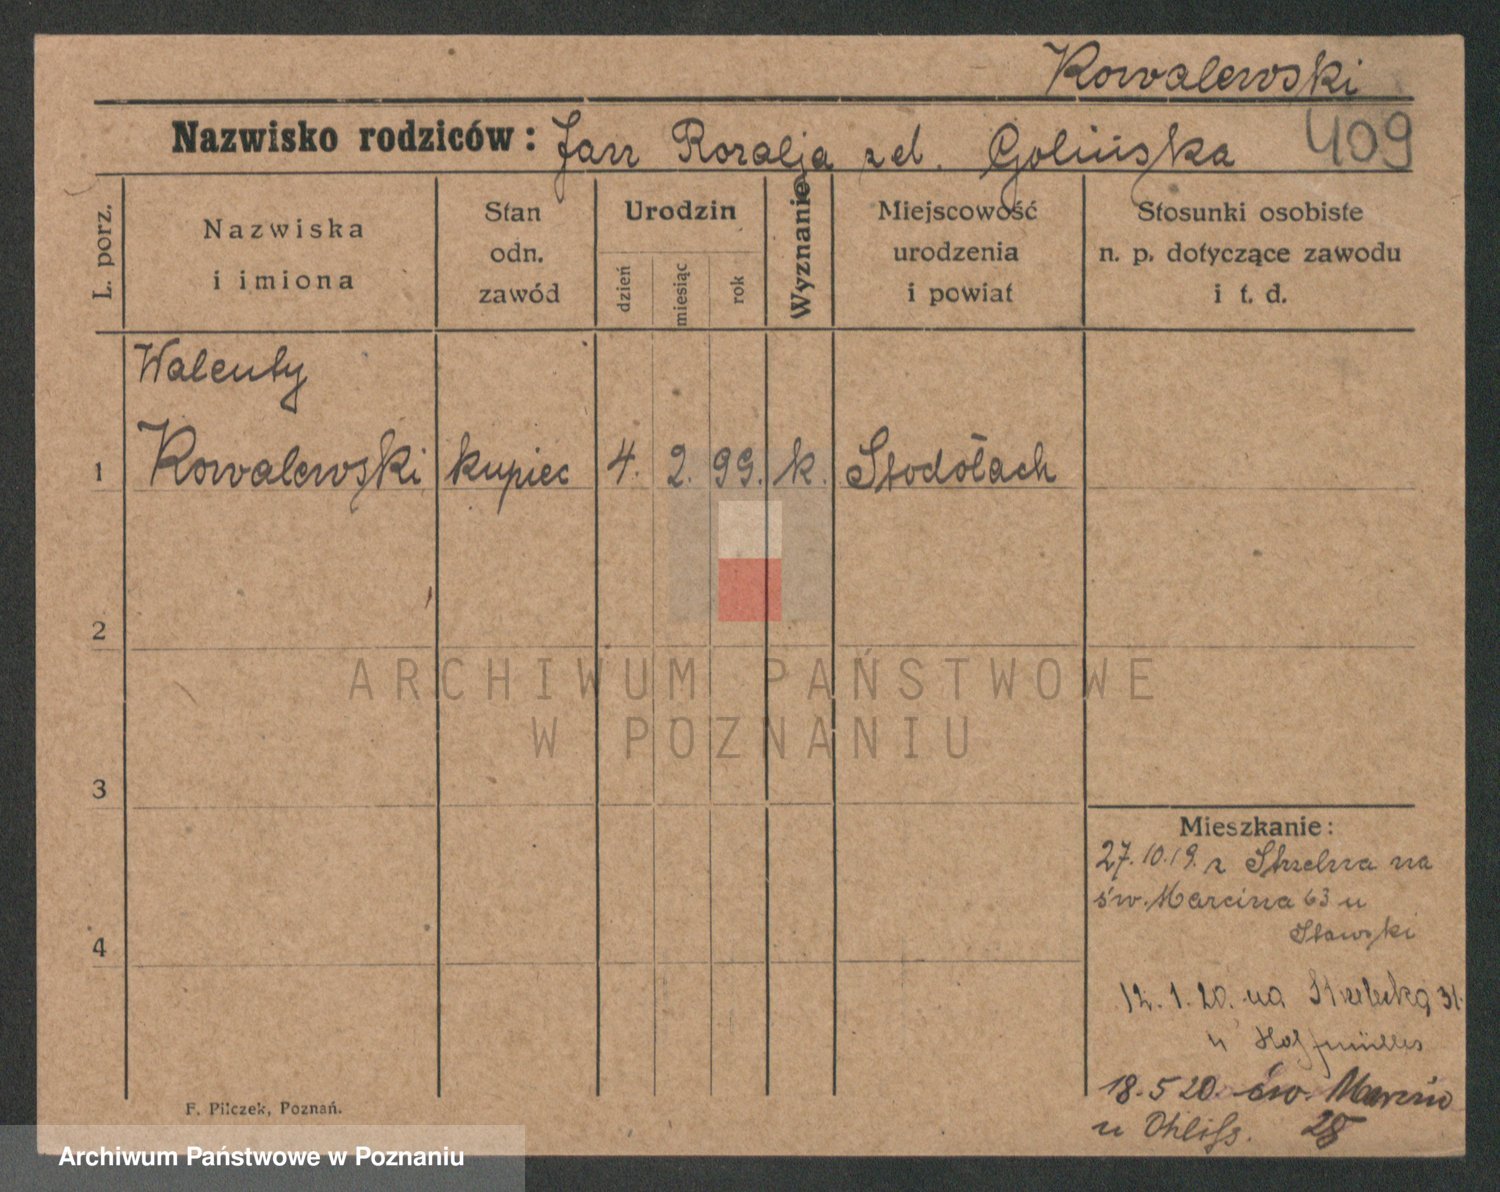 Kowalewski
409
Nazwisko rodziców: Jan Rozalja zd. Golińska
L. porz.
Nazwiska i imiona
Stan odn. zawód
Urodzin
dzień
miesiąc
rok
Wyznanie
Miejscowość urodzenia i powiat
Stosunki osobiste n. p. dotyczące zawodu i t. d.
Walenty
1 Kowalewski kupiec 4. 2. 99. k. Stodołach
2
ARCHIWUM PAŃSTWOWE
W POZNANIU
3
Mieszkanie:
27.10.19. z Strzelna na
św. Marcina 63 u
Stawski
4
12.1.20. na Strzelecką 31.
u Hoffmüller
18.5 20. św. Marcin
u Ohliss. 28
F. Pilczek, Poznań.
Archiwum Państwowe w Poznaniu